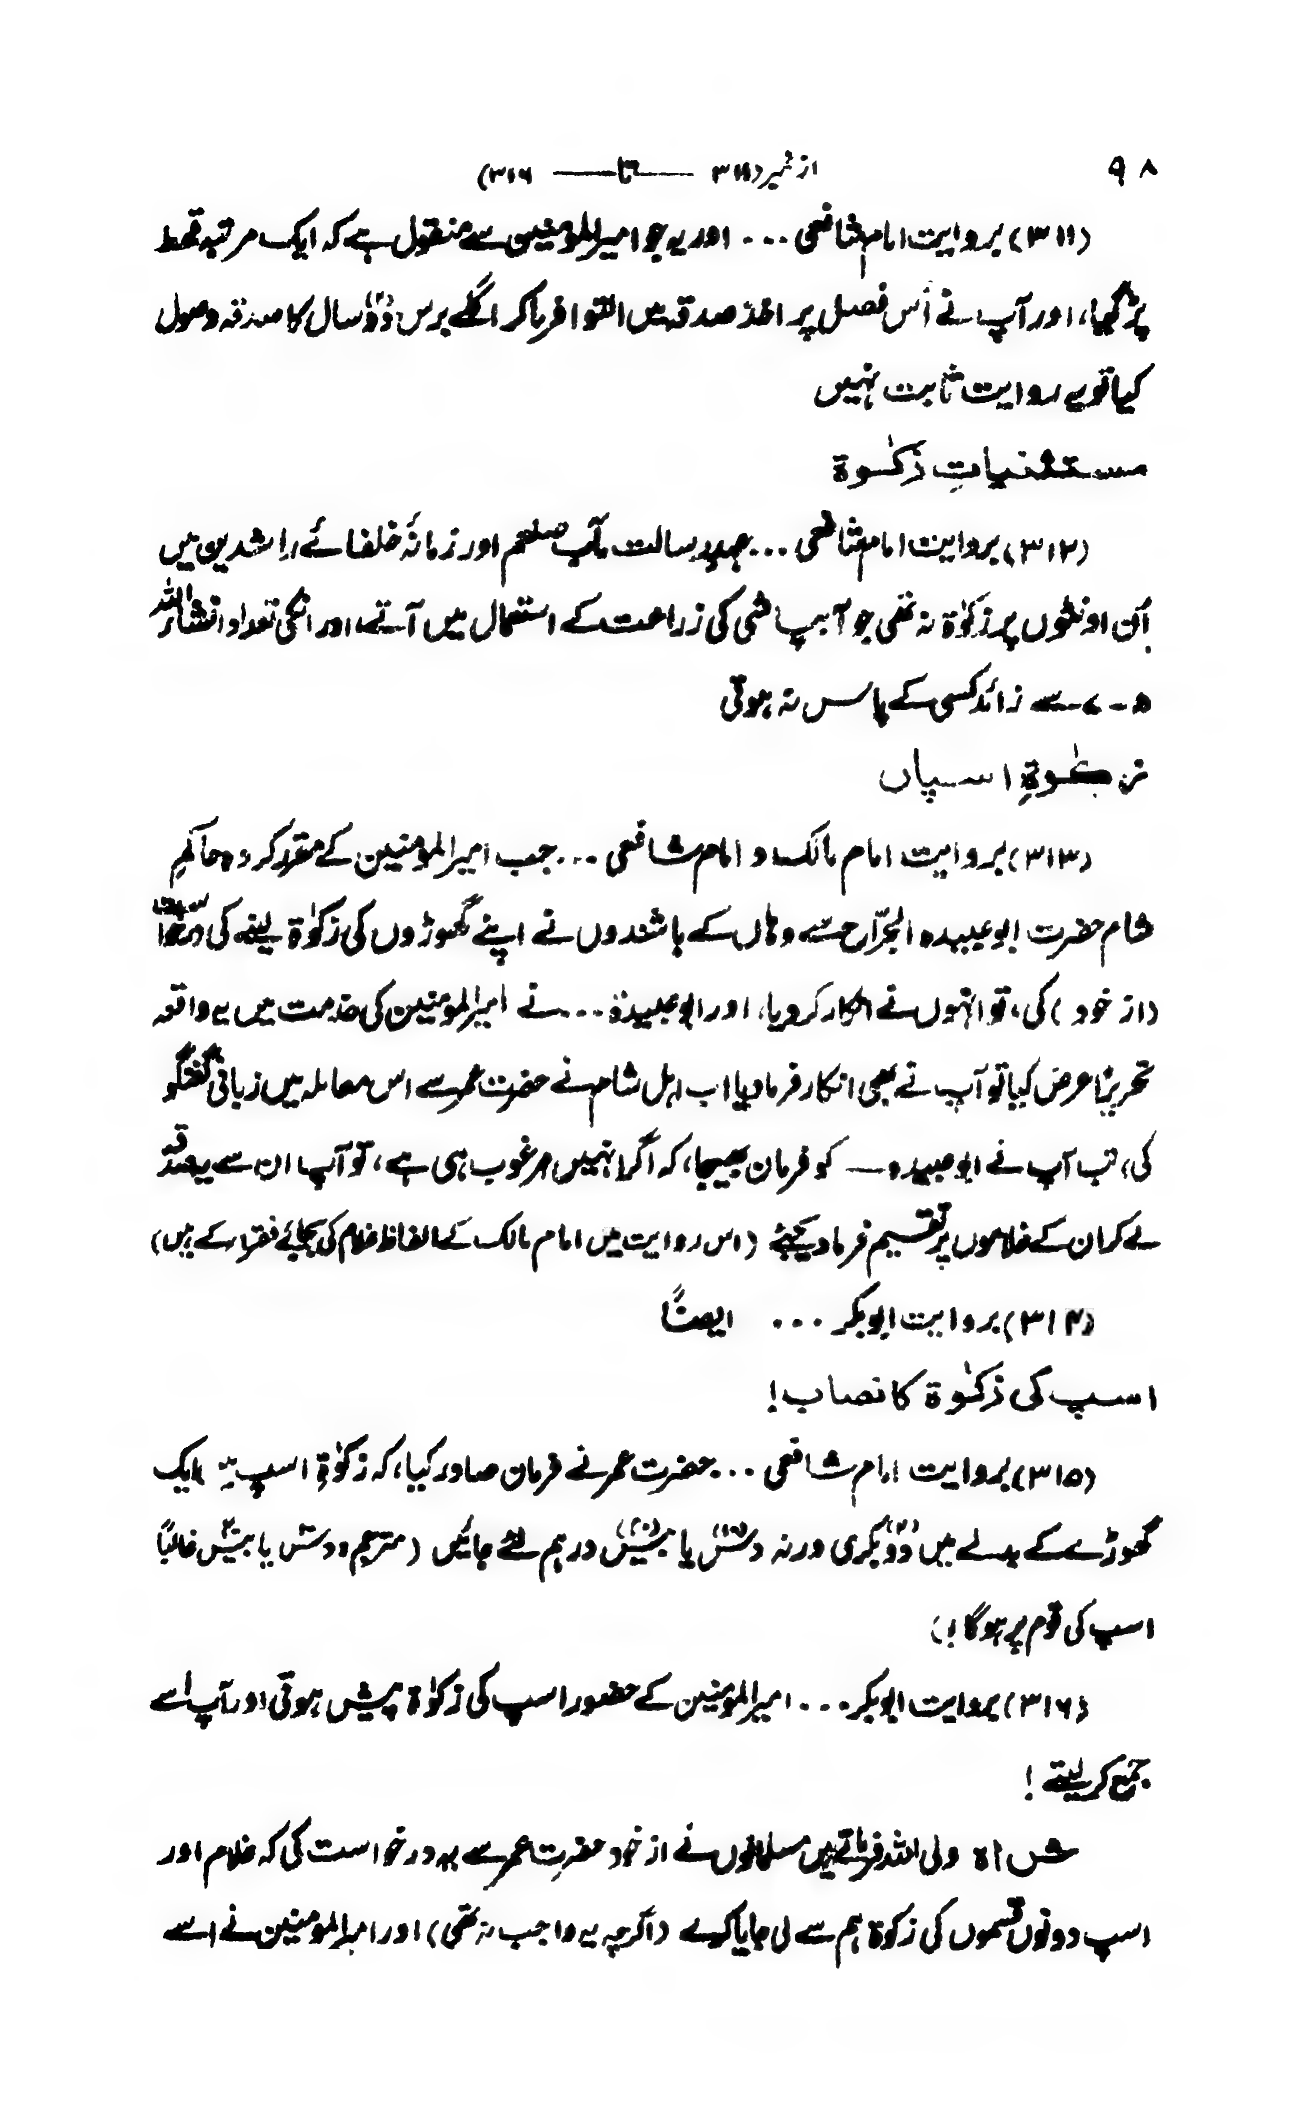 ۹۸ از نمبر (۳۱۱ —— تا —— ۳۱۶)
(۳۱۱) بروایت امام شافعی ... اور یہ جو امیرالمومنین سے منقول ہے کہ ایک مرتبہ قحط
پڑ گیا، اور آپ نے اُس فصل پر اخذ صدقہ میں التوا فرما کر اگلے برس دو (۲) سال کا صدقہ وصول
کیا تو یہ روایت ثابت نہیں
مستثنیاتِ زکوٰۃ
(۳۱۲) بروایت امام شافعی ... عہدِ رسالت مآب صلعم اور زمانۂ خلفائے راشدین میں
اُن اونٹوں پر زکوٰۃ نہ تھی جو آبپاشی کی زراعت کے استعمال میں آتے، اور انکی تعداد انشاء اللہ
۵-۷ سے زائد کسی کے پاس نہ ہوتی
زکوٰۃِ اسپاں
(۳۱۳) بروایت امام مالک و امام شافعی ... جب امیرالمومنین کے مقرر کردہ حاکمِ
شام حضرت ابو عبیدہ الجرّاح سے وہاں کے باشندوں نے اپنے گھوڑوں کی زکوٰۃ لینے کی درخواست
(از خود) کی، تو انہوں نے انکار کردیا، اور ابو عبیدہ ... نے امیرالمومنین کی خدمت میں یہ واقعہ
تحریرًا عرض کیا تو آپ نے بھی انکار فرما دیا اب اہل شام نے حضرت عمر سے اس معاملہ میں زبانی گفتگو
کی، تب آپ نے ابو عبیدہ — کو فرمان بھیجا، کہ اگر انہیں مرغوب ہی ہے، تو آپ ان سے یہ صدقہ
لے کر ان کے غلاموں پر تقسیم فرما دیجئے (اس روایت میں امام مالک کے الفاظ غلام کی بجائے فقراء کے ہیں)
(۳۱۴) بروایت ابوبکر ... ایضًا
اسپ کی زکوٰۃ کا نصاب!
(۳۱۵) بروایت امام شافعی ... حضرت عمر نے فرمان صادر کیا، کہ زکوٰۃِ اسپ پر ایک
گھوڑے کے بدلے میں دو (۲) بکری ورنہ دس (۱۰) یا بیس (۲۰) درہم لئے جائیں (مترجم و دس یا بیس غالبًا
اسپ کی قوم پر ہوگا!)
(۳۱۶) بروایت ابوبکر ... امیرالمومنین کے حضور اسپ کی زکوٰۃ پیش ہوتی اور آپ اسے
جمع کر لیتے!
شاہ ولی اللہ فرماتے ہیں مسلمانوں نے از خود حضرت عمر سے یہ درخواست کی کہ غلام اور
اسپ دونوں قسموں کی زکوٰۃ ہم سے لی جایا کرے (اگرچہ یہ واجب نہ تھی) اور امیرالمومنین نے اسے